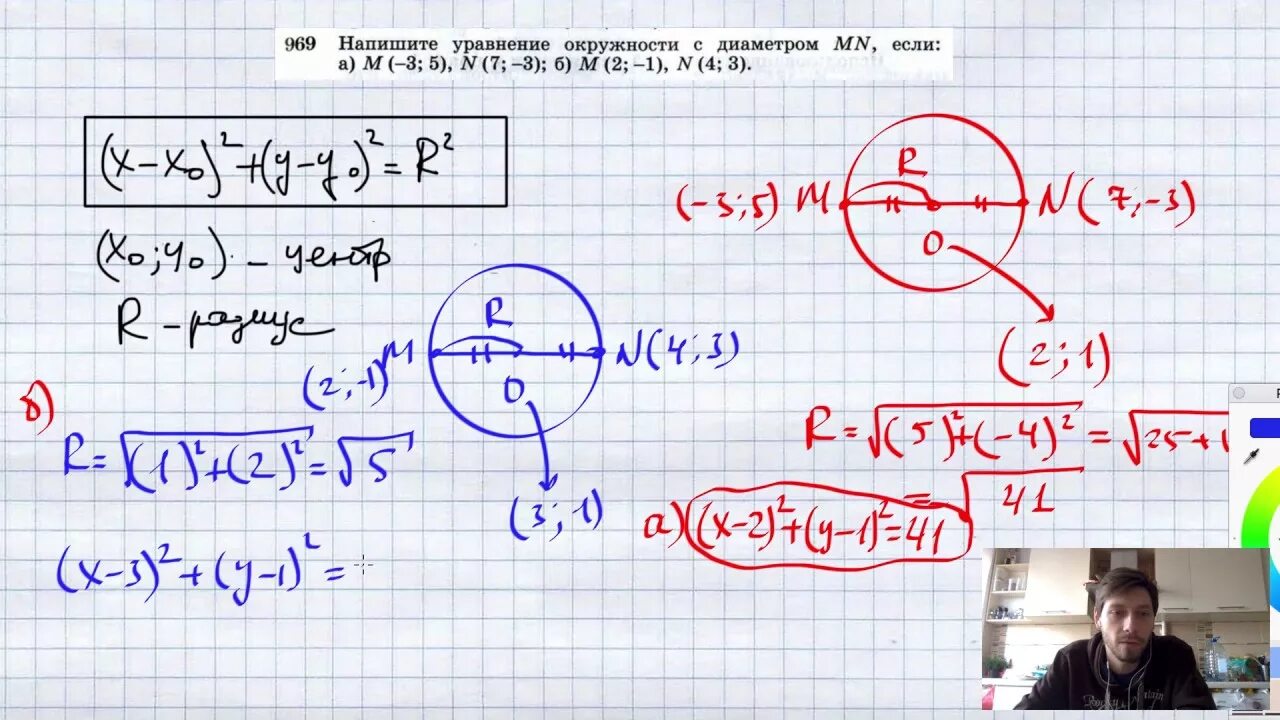 969 Напишите уравнение окружности с диаметром MN, если:
а) M (–3; 5), N (7; –3); б) M (2; –1), N (4; 3).
(x-x₀)²+(y-y₀)²=R²
(x₀;y₀). - центр
R - радиус
(-3;5) M
R
O
N(7;-3)
(2;1)
R=√(5)²+(-4)²=√25+1
=√41
а) (x-2)²+(y-1)²=41
(2;-1) M
R
O
N(4;3)
(3;1)
б)
R=√(1)²+(2)²=√5
(x-3)²+(y-1)²=